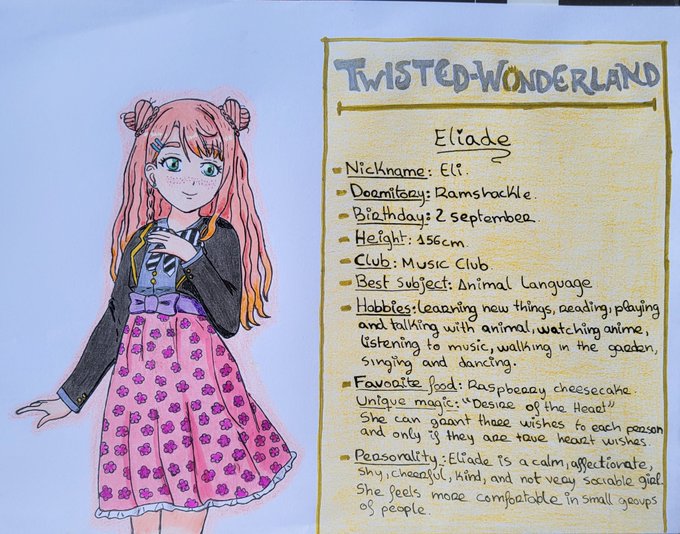 TWISTED-WONDERLAND
Eliade
Nickname: Eli.
Dormitory: Ramshackle.
Birthday: 2 september.
Height: 156cm.
Club: Music Club.
Best subject: Animal Language
Hobbies: learning new things, reading, playing
and talking with animal, watching anime,
listening to music, walking in the garden,
singing and dancing.
Favorite food: Raspberry cheesecake.
Unique magic: "Desire of the Heart"
She can grant three wishes to each person
and only if they are true heart wishes.
Personality: Eliade is a calm, affectionate,
shy, cheerful, kind, and not very sociable girl.
She feels more comfortable in small groups
of people.